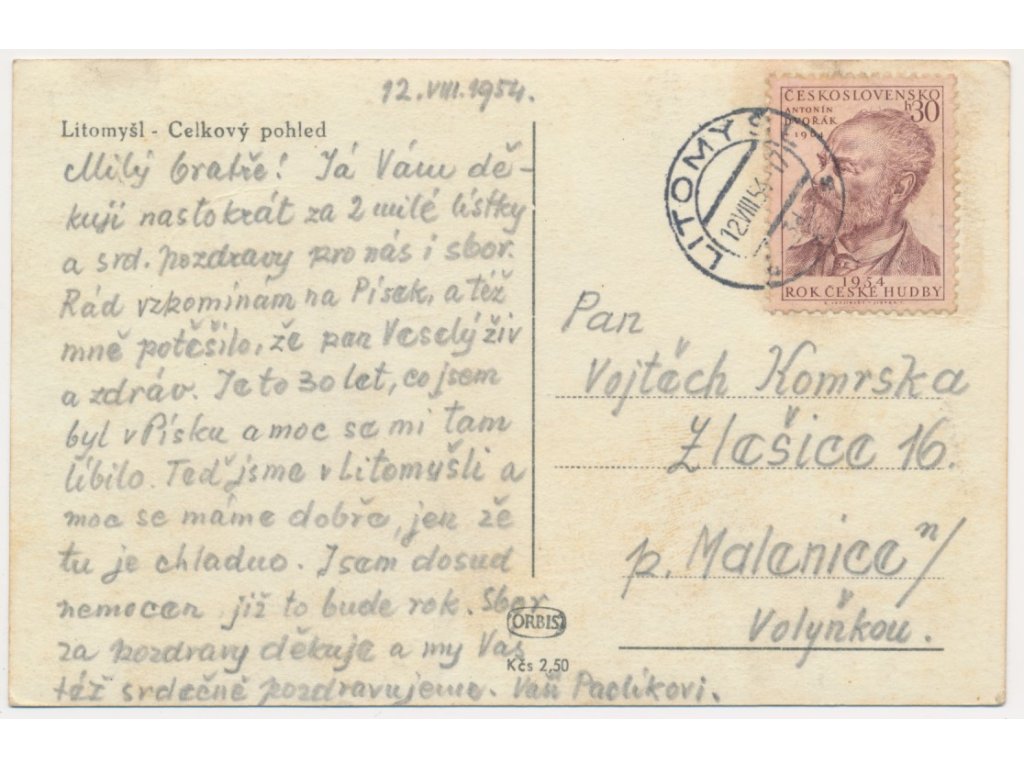 12.VIII.1954.
Litomyšl - Celkový pohled
Milý bratře! Já Vám dě-
kuji nastokrát za 2 milé lístky
a srd. pozdravy pro nás i sbor.
Rád vzpomínám na Písek, a též
mně potěšilo, že pan Veselý živ
a zdráv. Je to 30 let, co jsem
byl v Písku a moc se mi tam
líbilo. Teď jsme v Litomyšli a
moc se máme dobře, jen že
tu je chladno. Jsem dosud
nemocen již to bude rok. Sbor
za pozdravy děkuje a my Vás
též srdečně pozdravujeme. Vaši Pavlíkovi.
ORBIS
Kčs 2,50
LITOMYŠL
12.VIII.54-17
ČESKOSLOVENSKO
h 30
ANTONÍN
DVOŘÁK
1904
1954
ROK ČESKÉ HUDBY
Pan
Vojtěch Komrska
Zlešice 16.
p. Malenice n/
Volyňkou.